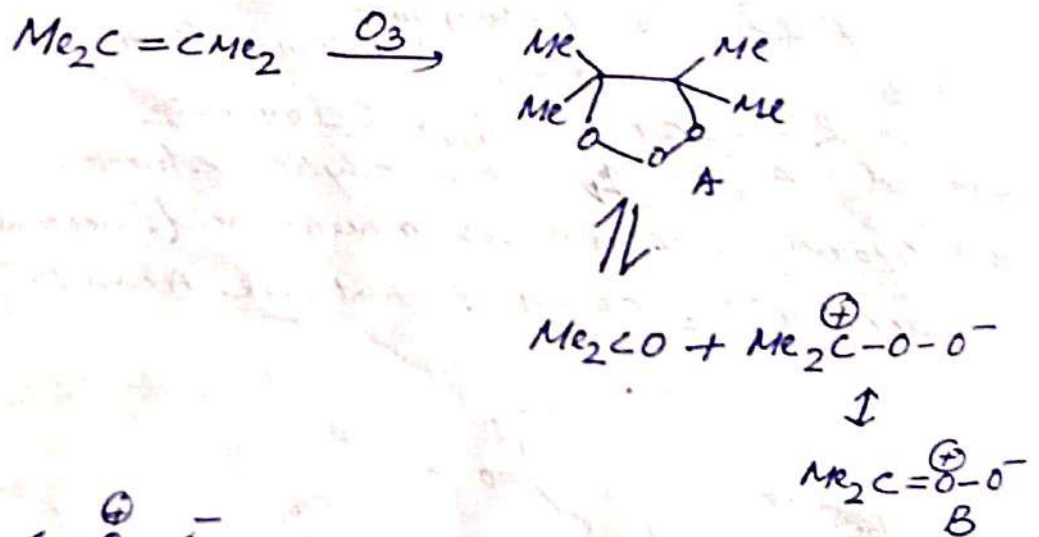 Me₂C = CMe₂ —O₃→
Me Me
Me Me
O O O
A
⇌
Me₂CO + Me₂C⊕–O–O⁻
↕
Me₂C=O⊕–O⁻
B
⊕ –